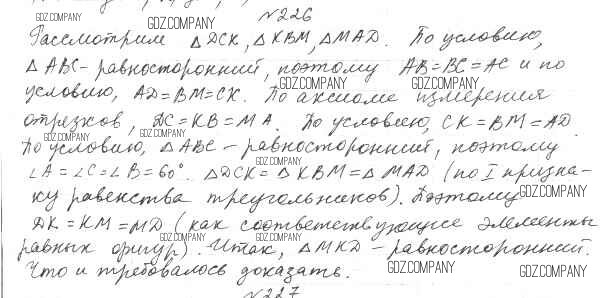 №226
Рассмотрим △DCK, △KBM, △MAD. По условию,
△ABC - равносторонний, поэтому AB=BC=AC и по
условию, AD=BM=CK. По аксиоме измерения
отрезков, DC=KB=MA. По условию, CK=BM=AD.
По условию, △ABC - равносторонний, поэтому
∠A=∠C=∠B=60°. △DCK=△KBM=△MAD (по I призна-
ку равенства треугольников). Поэтому
DK=KM=MD (как соответствующие элементы
равных фигур). Итак, △MKD - равносторонний.
Что и требовалось доказать.
№227
GDZ.COMPANY
GDZ.COMPANY
GDZ.COMPANY
GDZ.COMPANY
GDZ.COMPANY
GDZ.COMPANY
GDZ.COMPANY
GDZ.COMPANY
GDZ.COMPANY
GDZ.COMPANY
GDZ.COMPANY
GDZ.COMPANY
GDZ.COMPANY
GDZ.COMPANY